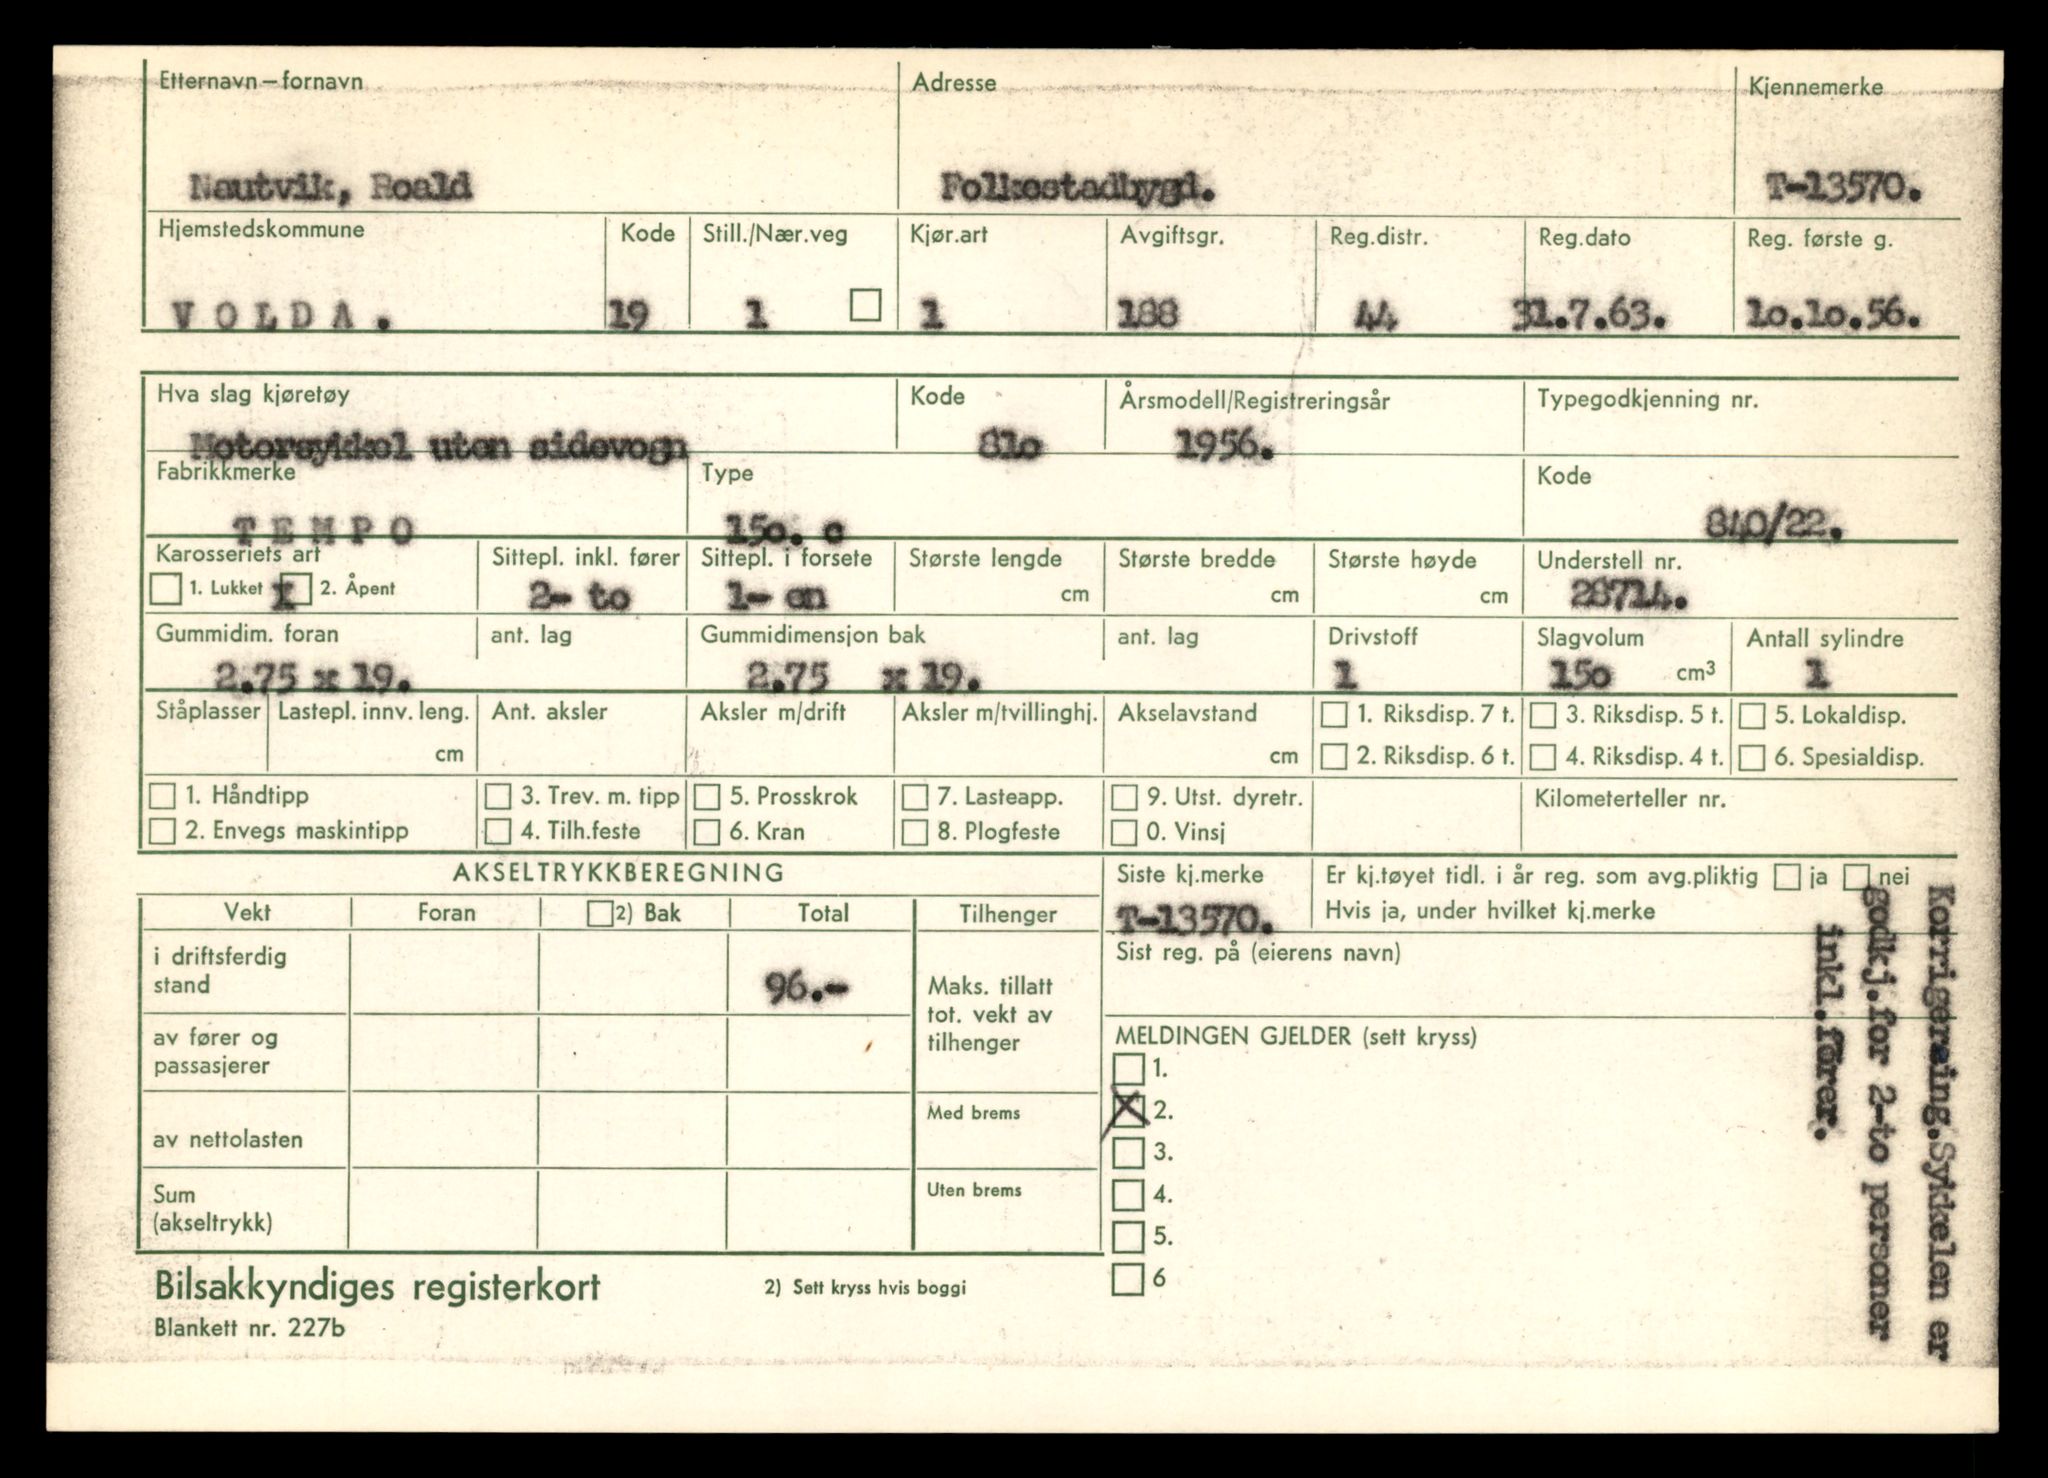 Etternavn – fornavn Adresse Kjennemerke
Nautvik, Roald Folkestadbygd. T-13570.
Hjemstedskommune Kode Still./Nær.veg Kjør.art Avgiftsgr. Reg.distr. Reg.dato Reg. første g.
VOLDA. 19 1 1 188 44 31.7.63. 1o.1o.56.
Hva slag kjøretøy Kode Årsmodell/Registreringsår Typegodkjenning nr.
Motorsykkel uten sidevogn 81o 1956.
Fabrikkmerke Type Kode
TEMPO 15o. c 840/22.
Karosseriets art Sittepl. inkl. fører Sittepl. i forsete Største lengde Største bredde Største høyde Understell nr.
1. Lukket x 2. Åpent 2- to 1- en cm cm cm 28714.
Gummidim. foran ant. lag Gummidimensjon bak ant. lag Drivstoff Slagvolum Antall sylindre
2.75 x 19. 2.75 x 19. 1 15o cm³ 1
Ståplasser Lastepl. innv. leng. Ant. aksler Aksler m/drift Aksler m/tvillinghj. Akselavstand 1. Riksdisp. 7 t. 3. Riksdisp. 5 t. 5. Lokaldisp.
cm cm 2. Riksdisp. 6 t. 4. Riksdisp. 4 t. 6. Spesialdisp.
1. Håndtipp 3. Trev. m. tipp 5. Prosskrok 7. Lasteapp. 9. Utst. dyretr. Kilometerteller nr.
2. Envegs maskintipp 4. Tilh.feste 6. Kran 8. Plogfeste 0. Vinsj
AKSELTRYKKBEREGNING Siste kj.merke Er kj.tøyet tidl. i år reg. som avg.pliktig ja nei
Vekt Foran 2) Bak Total Tilhenger T-13570. Hvis ja, under hvilket kj.merke
i driftsferdig stand 96.- Maks. tillatt tot. vekt av tilhenger Sist reg. på (eierens navn)
av fører og passasjerer MELDINGEN GJELDER (sett kryss)
1.
Med brems X 2.
av nettolasten 3.
Sum (akseltrykk) Uten brems 4.
5.
6
Bilsakkyndiges registerkort 2) Sett kryss hvis boggi
Blankett nr. 227b
Korrigereing.Sykkelen er
godkj.for 2-to personer
inkl.fører.